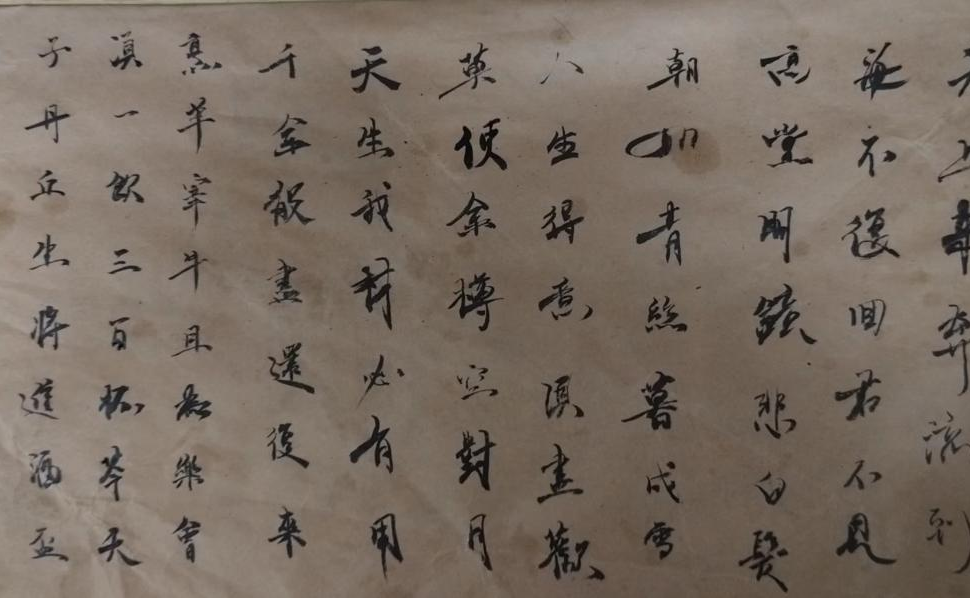 天上奔流到
海不復回君不見
高堂明鏡悲白髮
朝如青絲暮成雪
人生得意須盡歡
莫使金樽空對月
天生我材必有用
千金散盡還復來
烹羊宰牛且為樂會
須一飲三百杯岑夫
子丹丘生將進酒盃